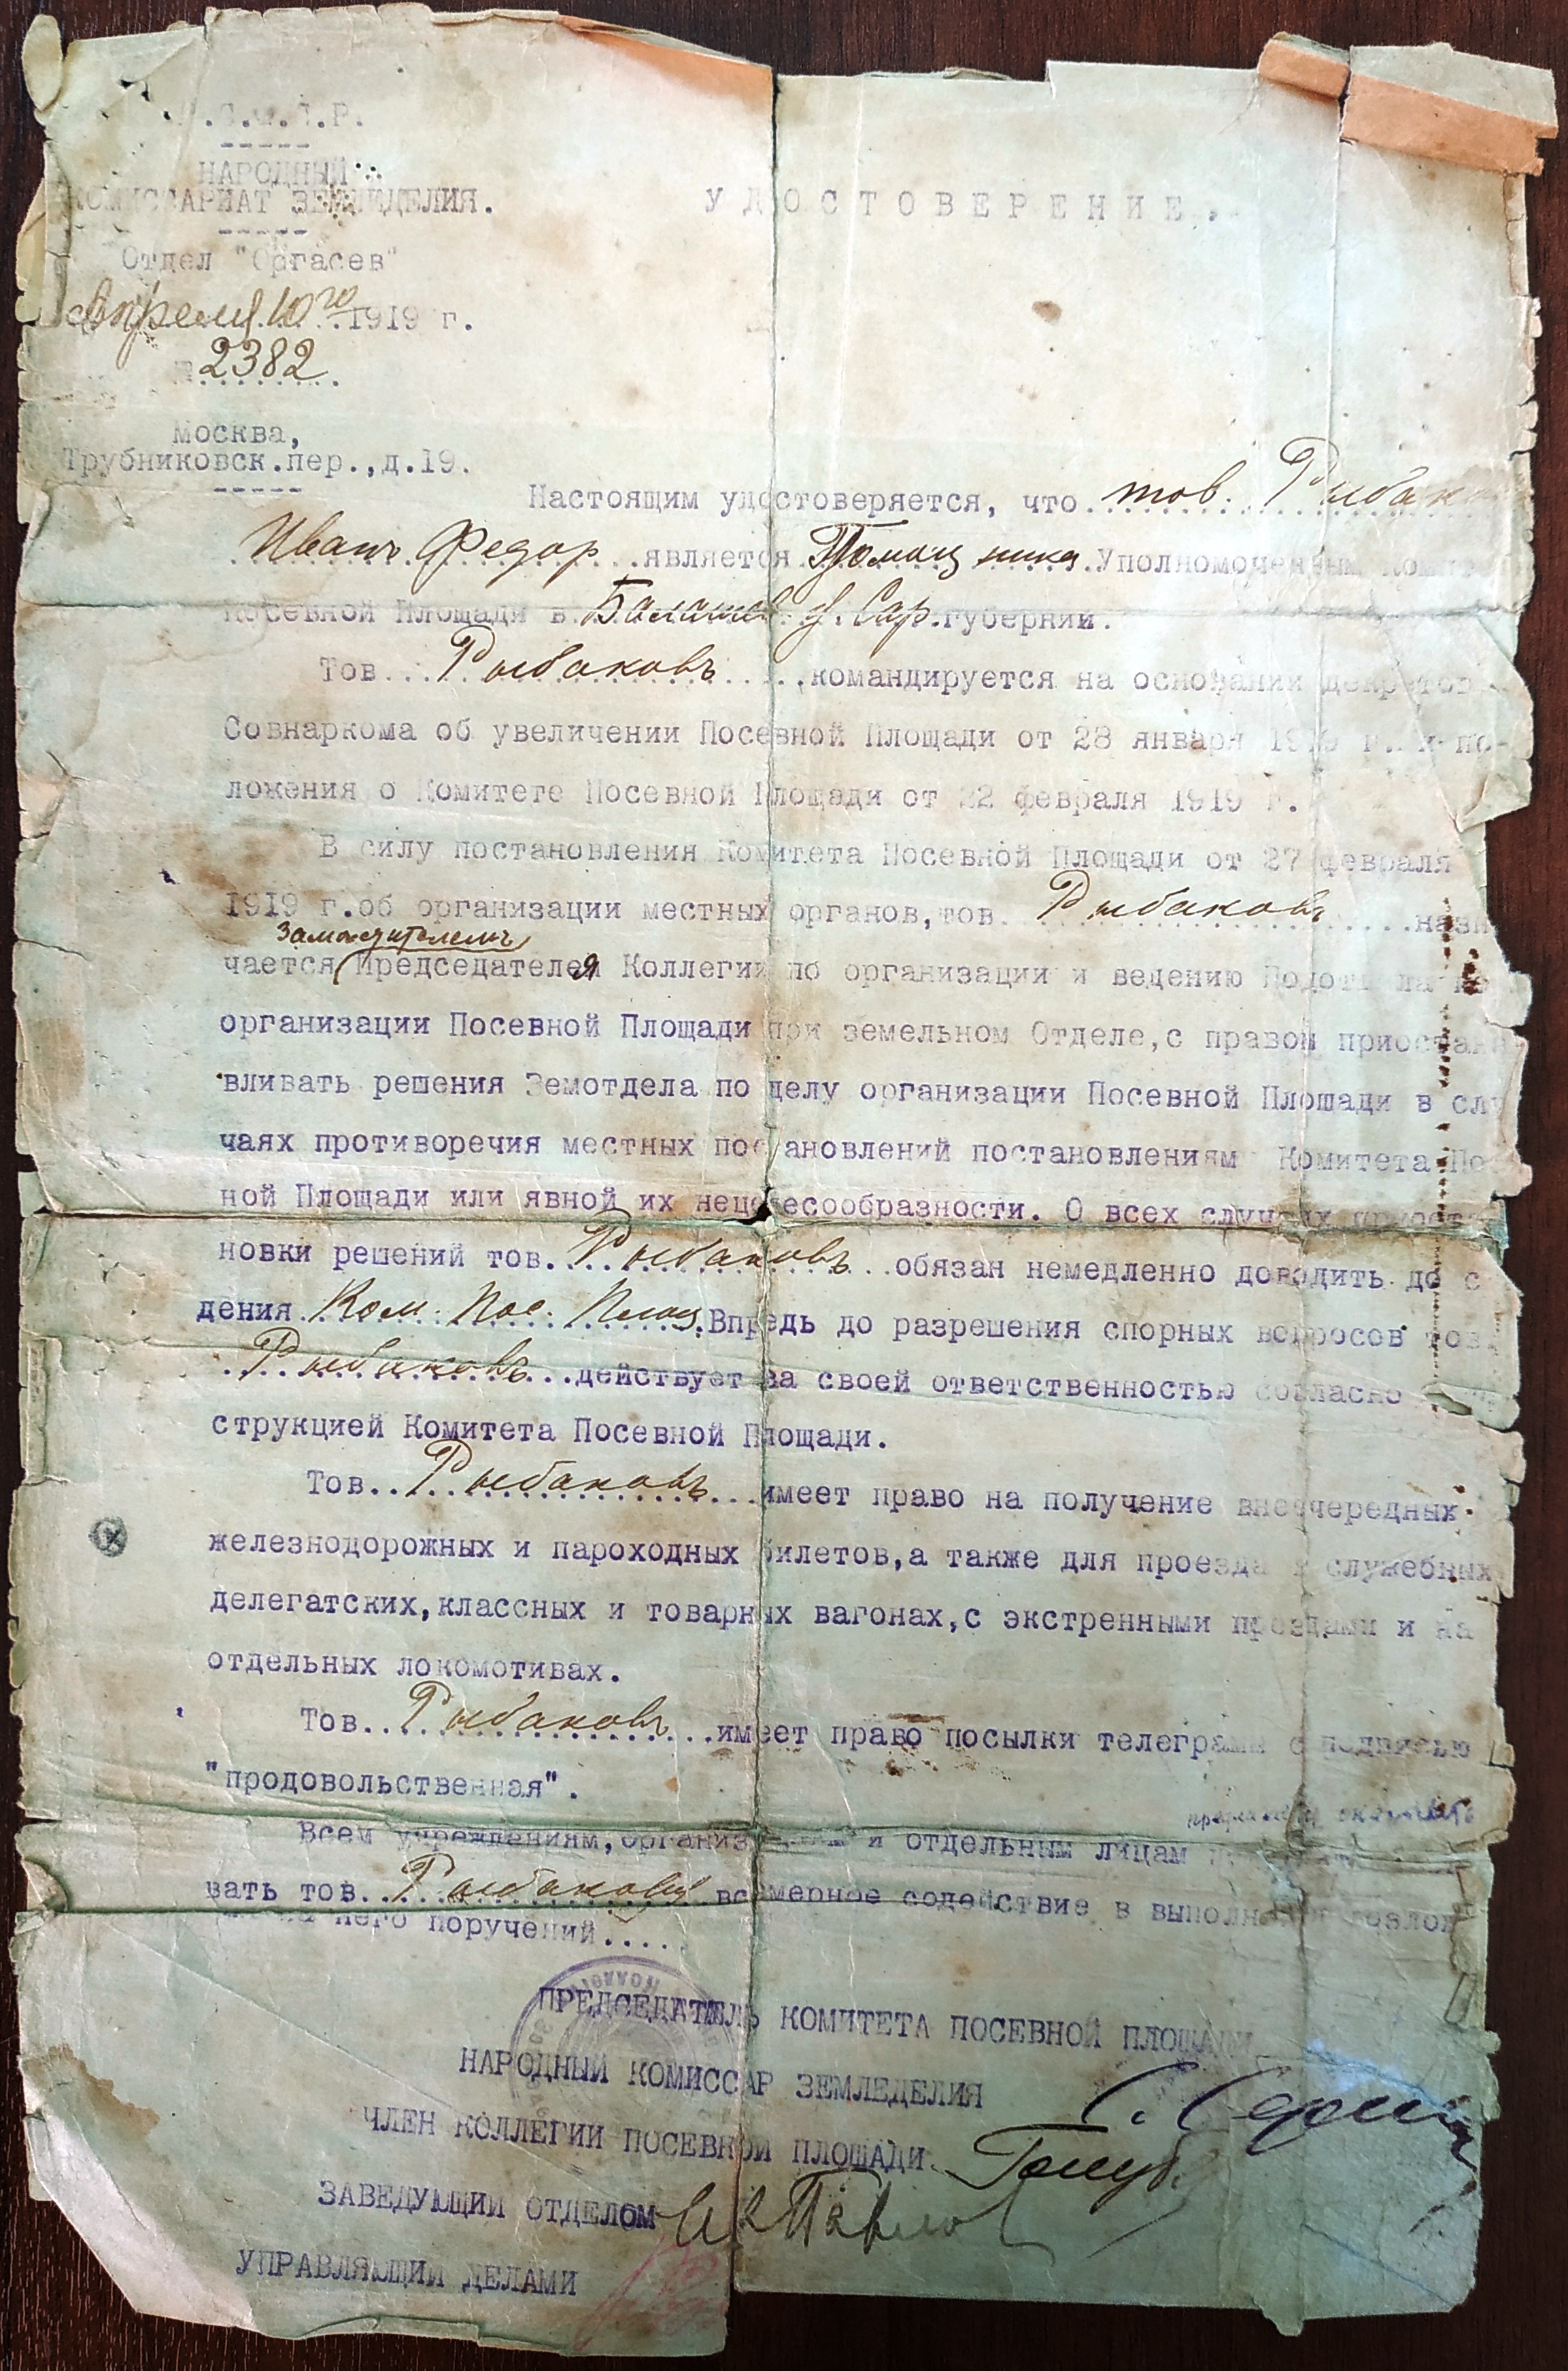 .С.Ф.С.Р.
НАРОДНЫЙ
КОМИССАРИАТ ЗЕМЛЕДЕЛИЯ.
Отдел "Оргасев"
Апреля 10го 1919 г.
2382
Москва,
Трубниковск.пер.,д.19.
УДОСТОВЕРЕНИЕ.
Настоящим удостоверяется, что тов. Рыбаков
Иванъ Федор. является Уполномоченным
Посевной Площади в Балашов. у. Сар. губернии.
Тов. Рыбаковъ командируется на основании декретов
Совнаркома об увеличении Посевной Площади от 28 января 1919 г. и по-
ложения о Комитете Посевной Площади от 22 февраля 1919 г.
В силу постановления Комитета Посевной Площади от 27 февраля
1919 г. об организации местных органов, тов. Рыбаковъ назн
заместителемъ
чается Председателя Коллегии по организации и ведению
организации Посевной Площади при земельном Отделе, с правом приостан
вливать решения Земотдела по делу организации Посевной Площади в слу
чаях противоречия местных постановлений постановлениям Комитета По
ной Площади или явной их нецелесообразности. О всех случаях приоста
новки решений тов. Рыбаковъ обязан немедленно доводить до с
дения Ком. Пос. Площ. Впредь до разрешения спорных вопросов тов.
Рыбаковъ действует за своей ответственностью согласно
струкцией Комитета Посевной Площади.
Тов. Рыбаковъ имеет право на получение внеочередных
железнодорожных и пароходных билетов, а также для проезда в служебных
делегатских, классных и товарных вагонах, с экстренными поездами и на
отдельных локомотивах.
Тов. Рыбаковъ имеет право посылки телеграмм с подписью
"продовольственная".
Всем учреждениям, организациям и отдельным лицам
вать тов. Рыбакову всемерное содействие в выполнении возлож
него поручений....
ПРЕДСЕДАТЕЛЬ КОМИТЕТА ПОСЕВНОЙ ПЛОЩАДИ
НАРОДНЫЙ КОМИССАР ЗЕМЛЕДЕЛИЯ
ЧЛЕН КОЛЛЕГИИ ПОСЕВНОЙ ПЛОЩАДИ
ЗАВЕДУЮЩИЙ ОТДЕЛОМ
УПРАВЛЯЮЩИЙ ДЕЛАМИ